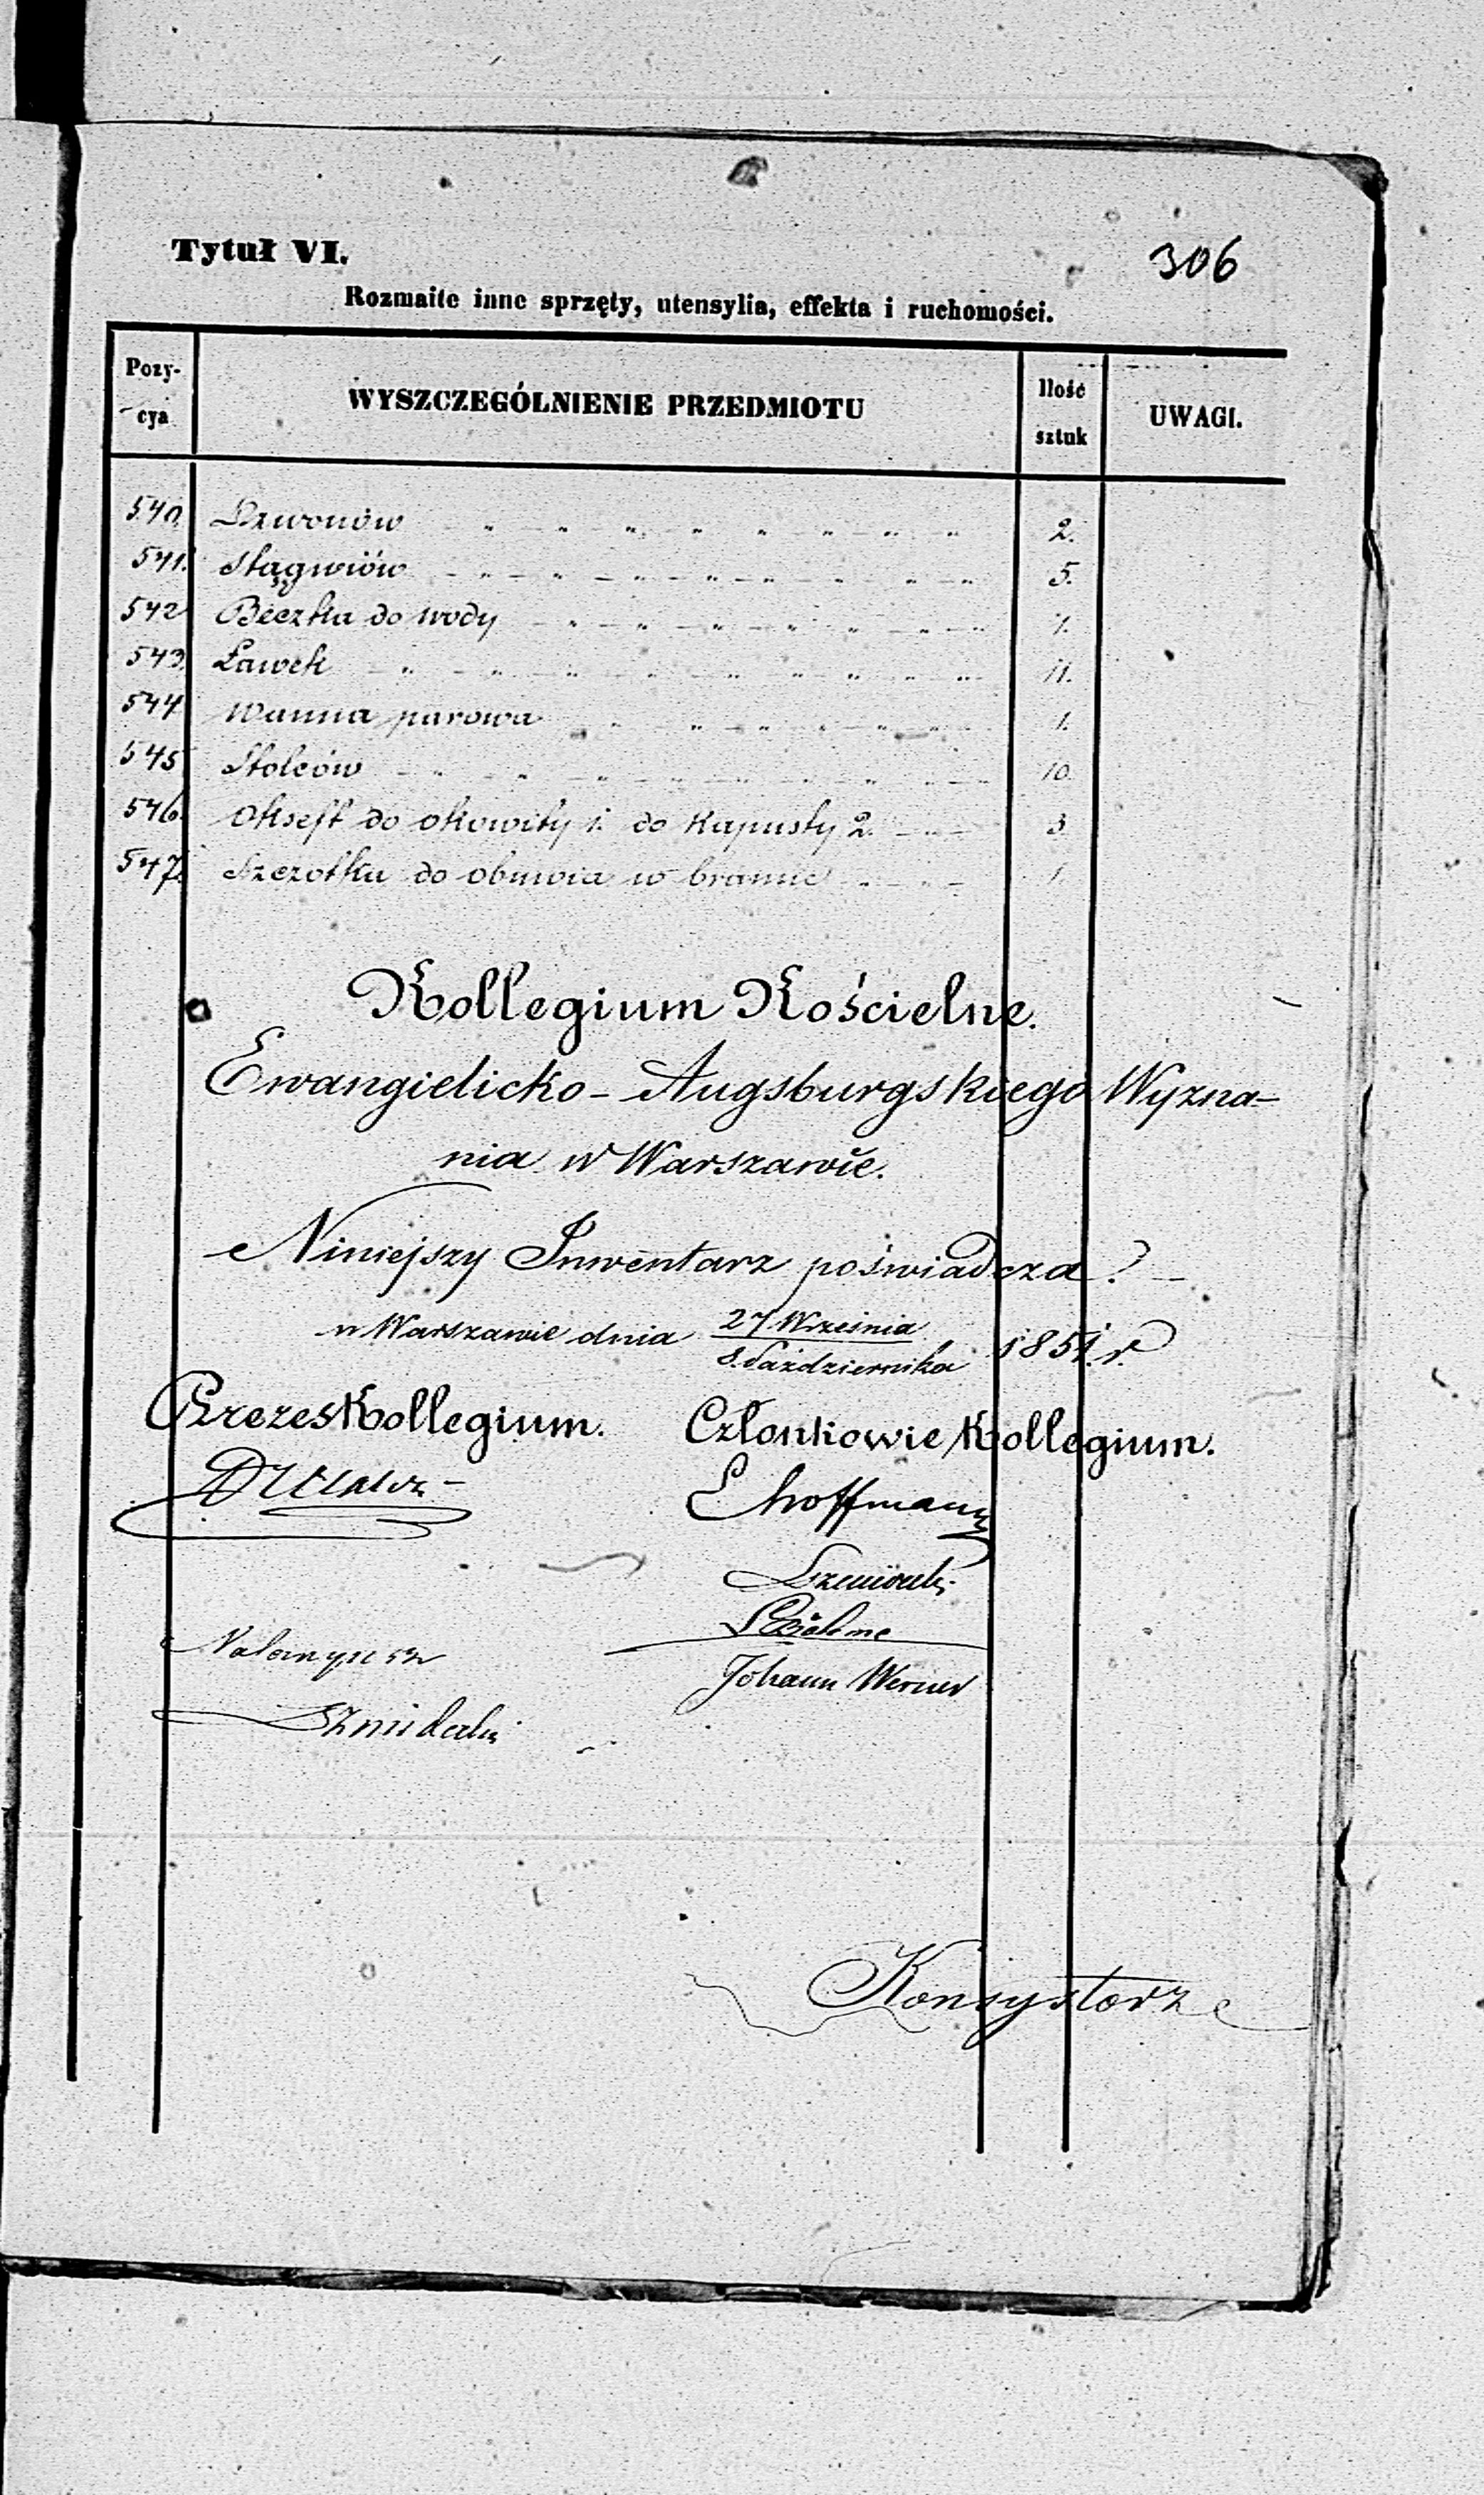 Tytuł VI.
306
Rozmaite inne sprzęty, utensylia, effekta i ruchomości.
Pozy-
cya
WYSZCZEGÓLNIENIE PRZEDMIOTU
Ilość
sztuk
UWAGI.
540. Dzwonów 2.
541. Stągwiów 5.
542 Beczka do wody 1.
543. Ławek 11.
544 Wanna parowa 1.
545 Stolców 10.
546. Okseft do okowity 1. do kapusty 2. 3.
547. Szczotka do obuwia w bramie 1.
Kollegium Kościelne.
Ewangielicko-Augsburgskiego Wyzna-
nia w Warszawie.
Niniejszy Inwentarz poświadcza
w Warszawie dnia 27 Września
8. Października 1851. r.
Prezes Kollegium. Członkowie Kollegium.
Hoffmann
Johann Werner
Konsystorz